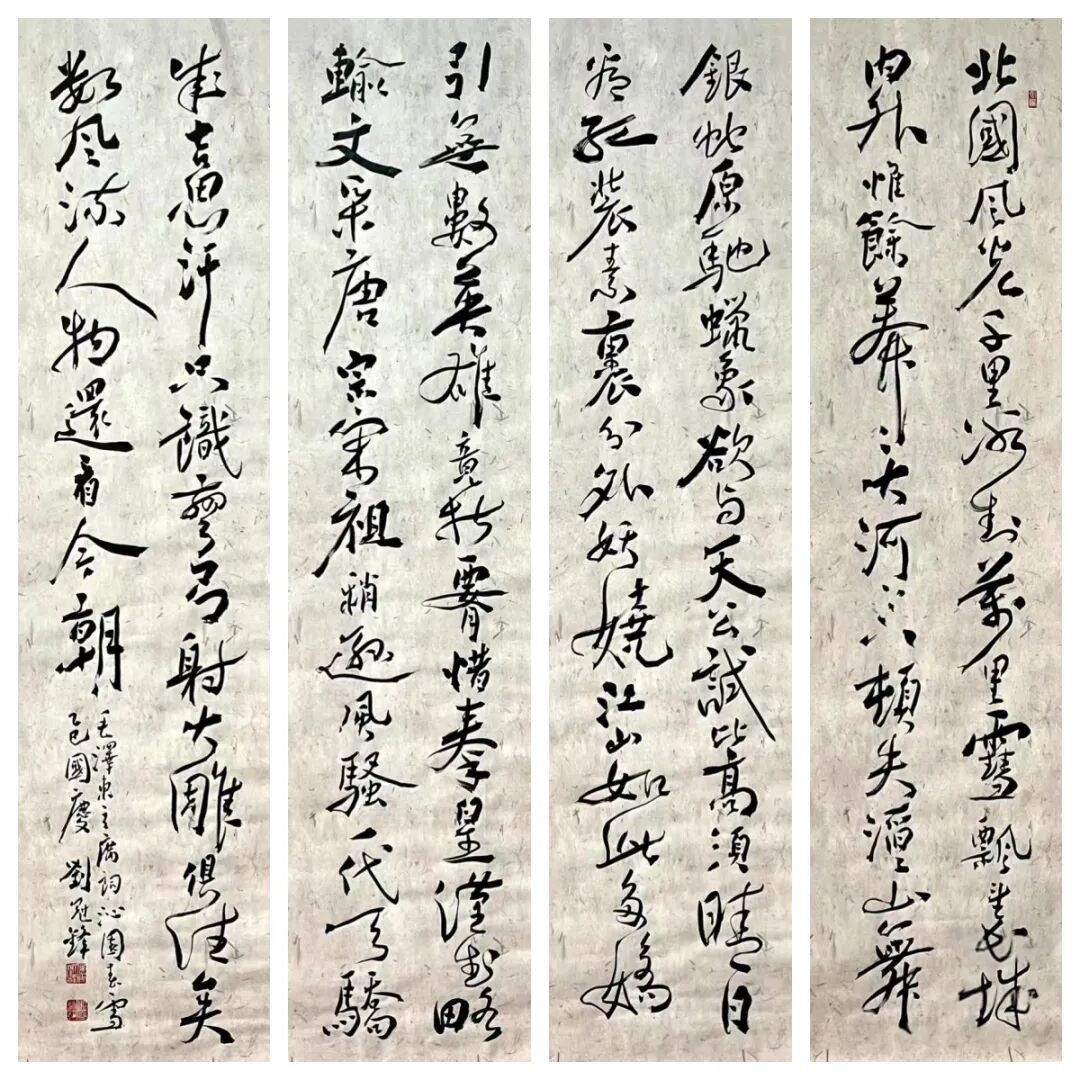 北國風光千里冰封萬里雪飄望長城
内外惟餘莽々大河上下頓失滔々山舞
銀蛇原馳蠟象欲与天公試比高須晴日
看紅裝素裹分外妖嬈江山如此多嬌
引無數英雄競折腰惜秦皇漢武略
輸文采唐宗宋祖稍遜風騷一代天驕
成吉思汗只識彎弓射大雕俱往矣
數风流人物還看今朝
毛澤東主席詞沁園春雪
乙巳國慶 劉冠鋒